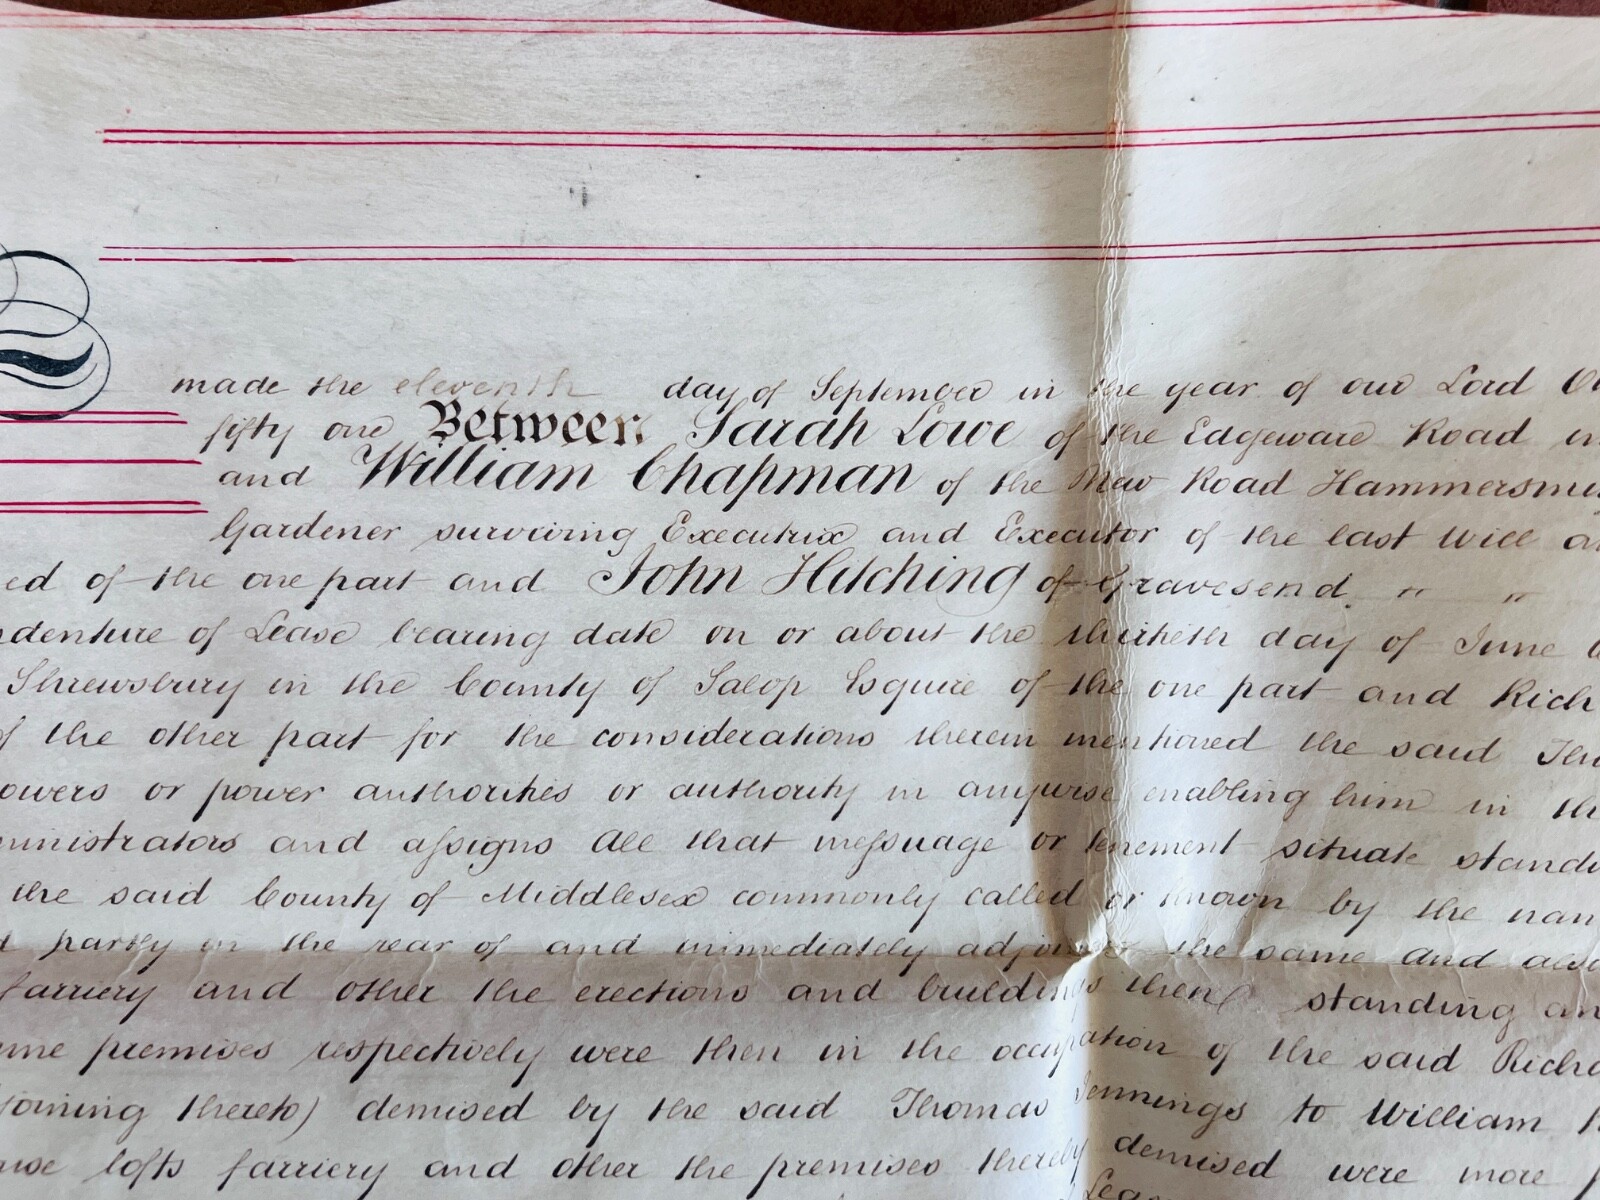 made the eleventh day of September in the year of our Lord
fifty one Between Sarah Lowe of the Edgeware Road in
and William Chapman of the New Road Hammersmi
Gardener surviving Executrix and Executor of the last Will an
ed of the one part and John Hitching of Gravesend " "
denture of Lease bearing date on or about the thirtieth day of June
Shrewsbury in the County of Salop Esquire of the one part and Rich
of the other part for the considerations therein mentioned the said Tho
owers or power authorities or authority in anywise enabling him in th
ministrators and assigns All that messuage or tenement situate standi
the said County of Middlesex commonly called or known by the nam
partly in the rear of and immediately adjoining the same and also
farriery and other the erections and buildings then standing an
ame premises respectively were then in the occupation of the said Richa
joining thereto) demised by the said Thomas Jennings to William
use lofts farriery and other the premises thereby demised were more p
Leas